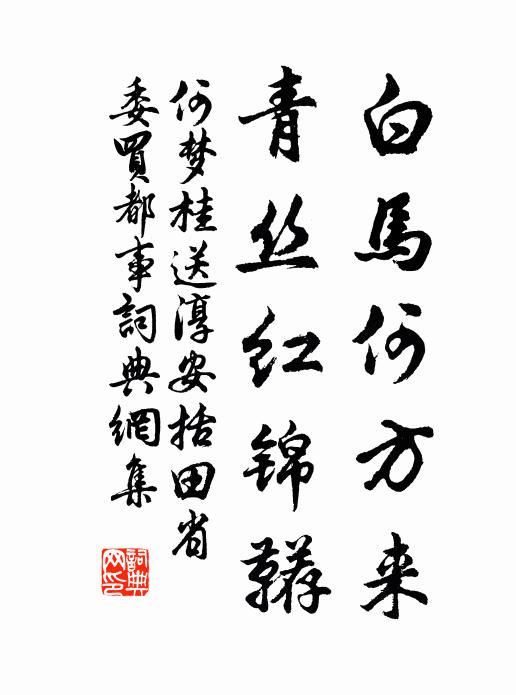 白馬何方来
青丝红锦韉
何梦桂送淳安括田省
委買都事詞典網集
詞典
网印